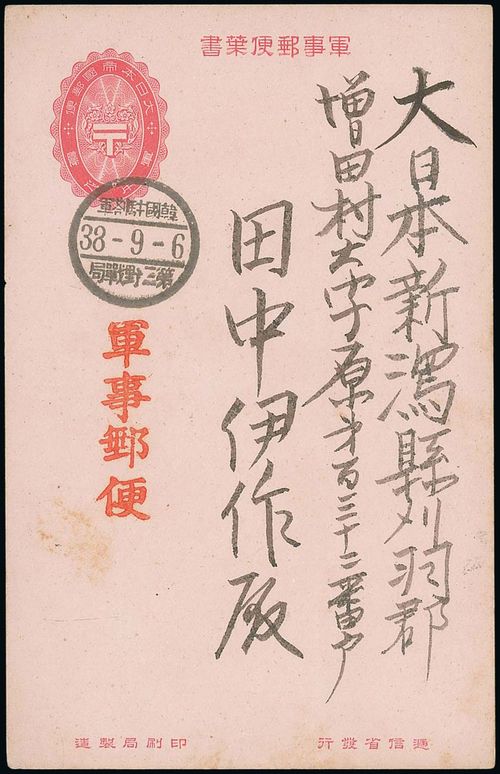 軍事郵便葉書
大日本新潟縣刈羽郡
増田村大字原才百三十二番戸
田中伊作殿
大日本帝國郵便
38-9-6
軍事郵便
逓信省發行
印刷局製造